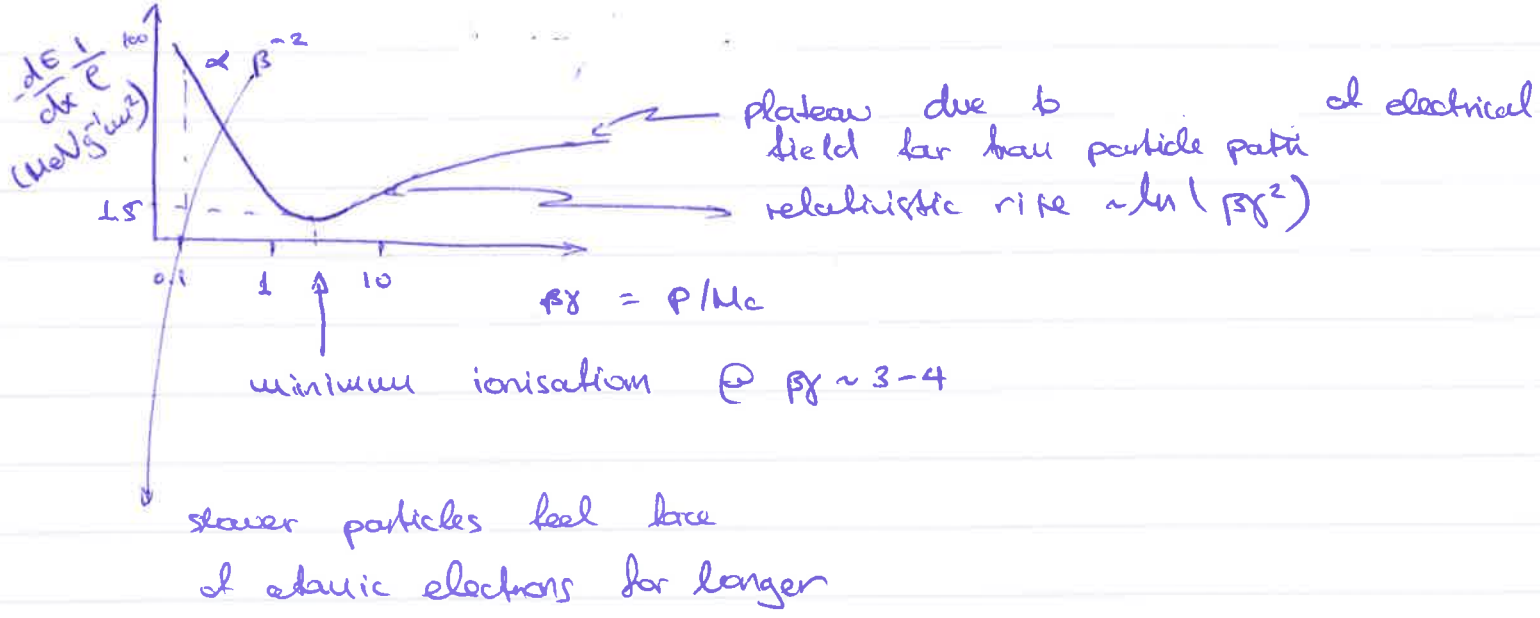 -dE/dx 1/ρ
(MeV g⁻¹ cm²)
100
∝ β⁻²
1.5
0.1 1 10
βγ = P/Mc
plateau due to of electrical
field far from particle path
relativistic rise ~ ln(βγ²)
minimum ionisation @ βγ ~ 3-4
slower particles feel force
of atomic electrons for longer